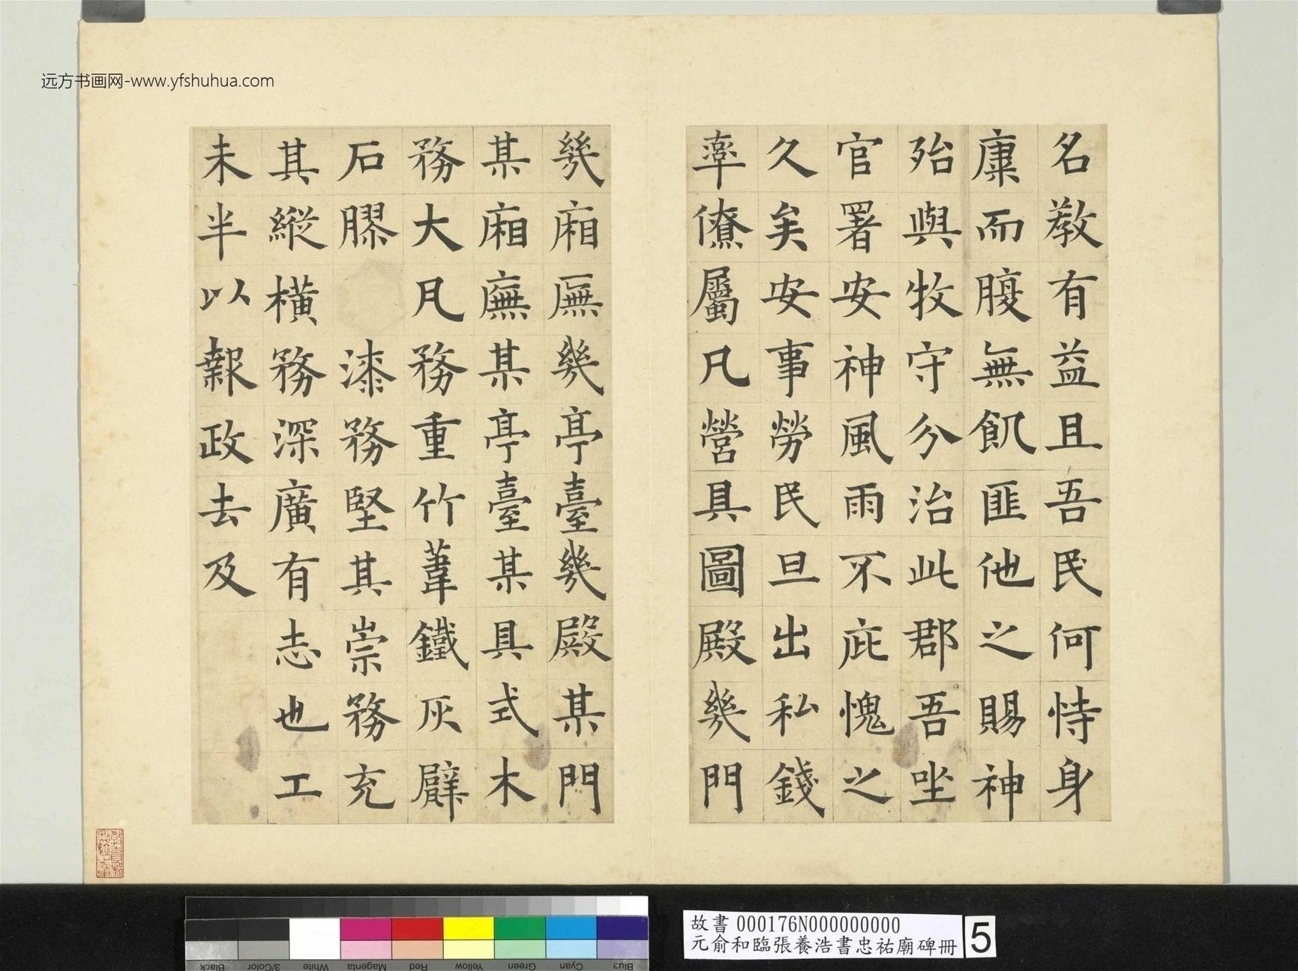 远方书画网-www.yfshuhua.com
名教有益且吾民何恃身
廩而腹無飢匪他之賜神
殆與牧守分治此郡吾坐
官署安神風雨不庇愧之
久矣安事勞民旦出私錢
率僚屬凡營具圖殿幾門
幾廂廡幾亭臺幾殿某門
某廂廡某亭臺某具式木
務大凡務重竹葦鐵灰甓
石膠漆務堅其崇務充
其縱橫務深廣有志也工
未半以報政去及
故書 000176N000000000
元俞和臨張養浩書忠祐廟碑冊
5
Black
3/Color
White
Magenta
Red
Yellow
Green
Cyan
Blue